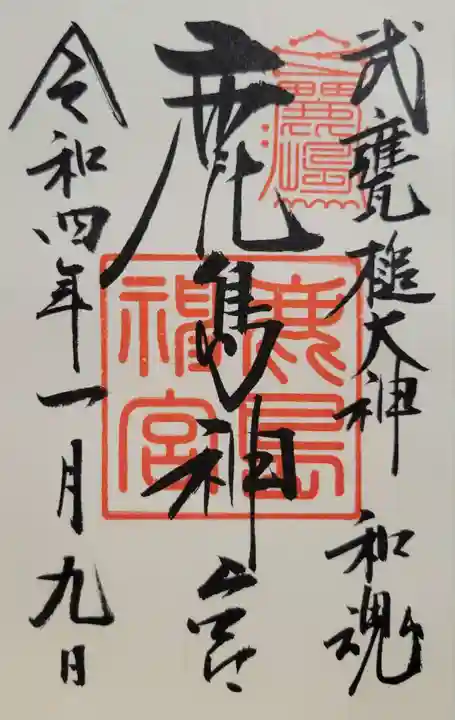 武甕槌大神 和魂
鹿島神宮
令和四年一月九日
鹿島
神宮